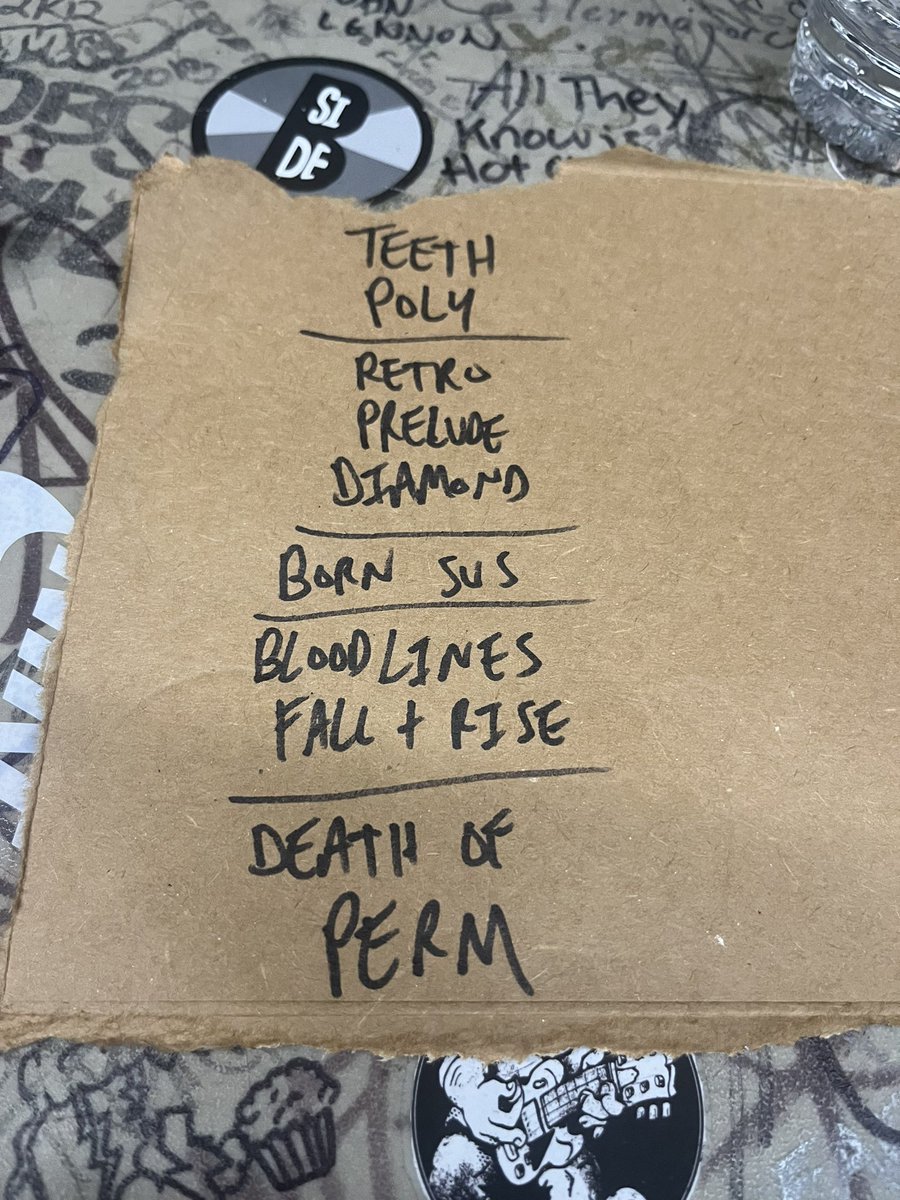 LENNON
SI
DE
B
All They
Know is
Hot
TEETH
POLY
RETRO
PRELUDE
DIAMOND
BORN SUS
BLOODLINES
FALL + RISE
DEATH OF
PERM